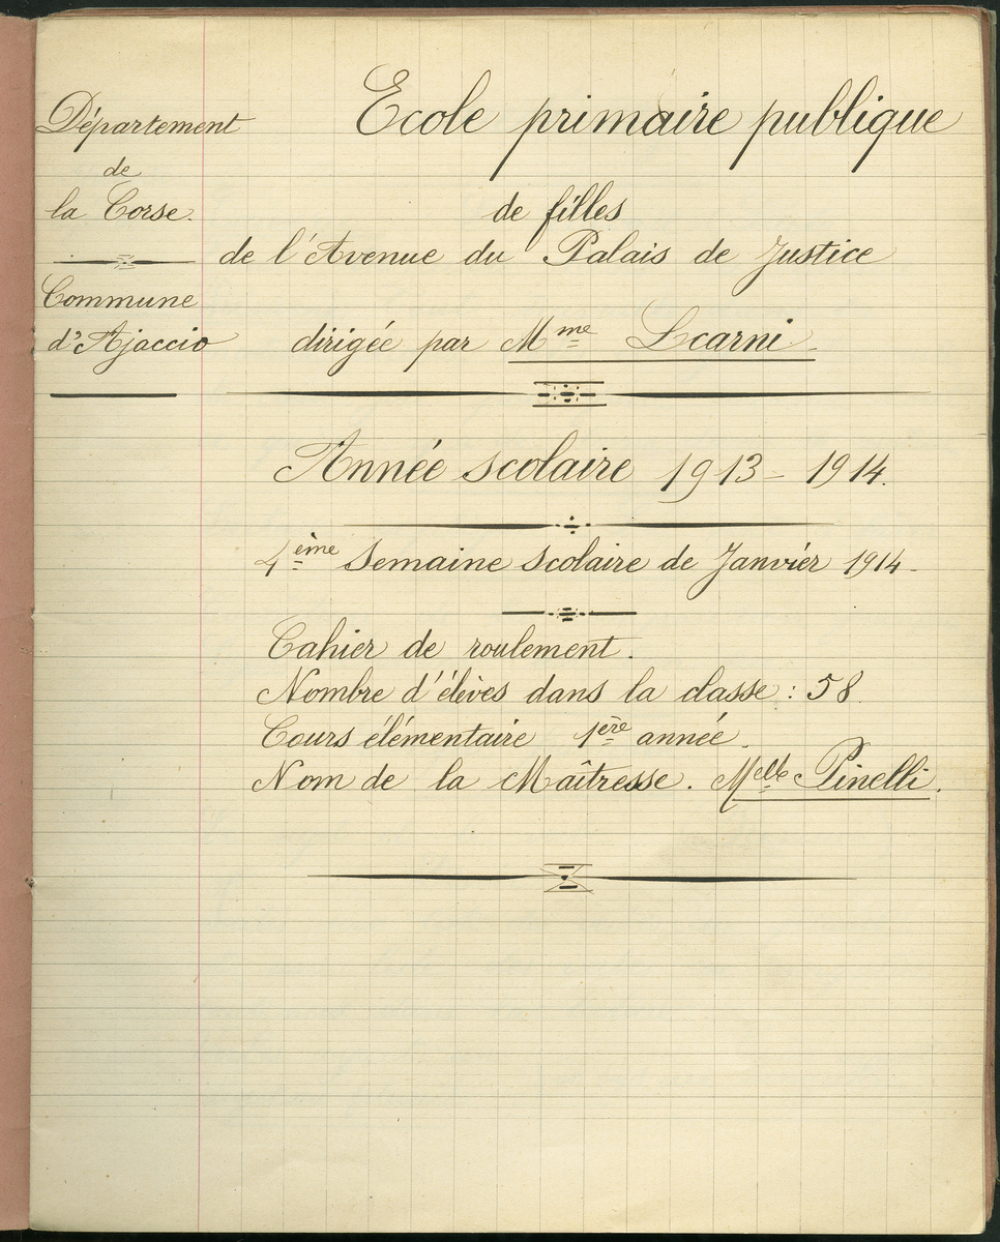 Département
de
la Corse.
Commune
d'Ajaccio
Ecole primaire publique
de filles
de l'Avenue du Palais de Justice
dirigée par Mme Scarni.
Année scolaire 1913-1914.
4ème Semaine scolaire de Janvier 1914-
Cahier de roulement.
Nombre d'élèves dans la classe : 58.
Cours élémentaire 1ère année.
Nom de la Maîtresse. Melle Pinelli.